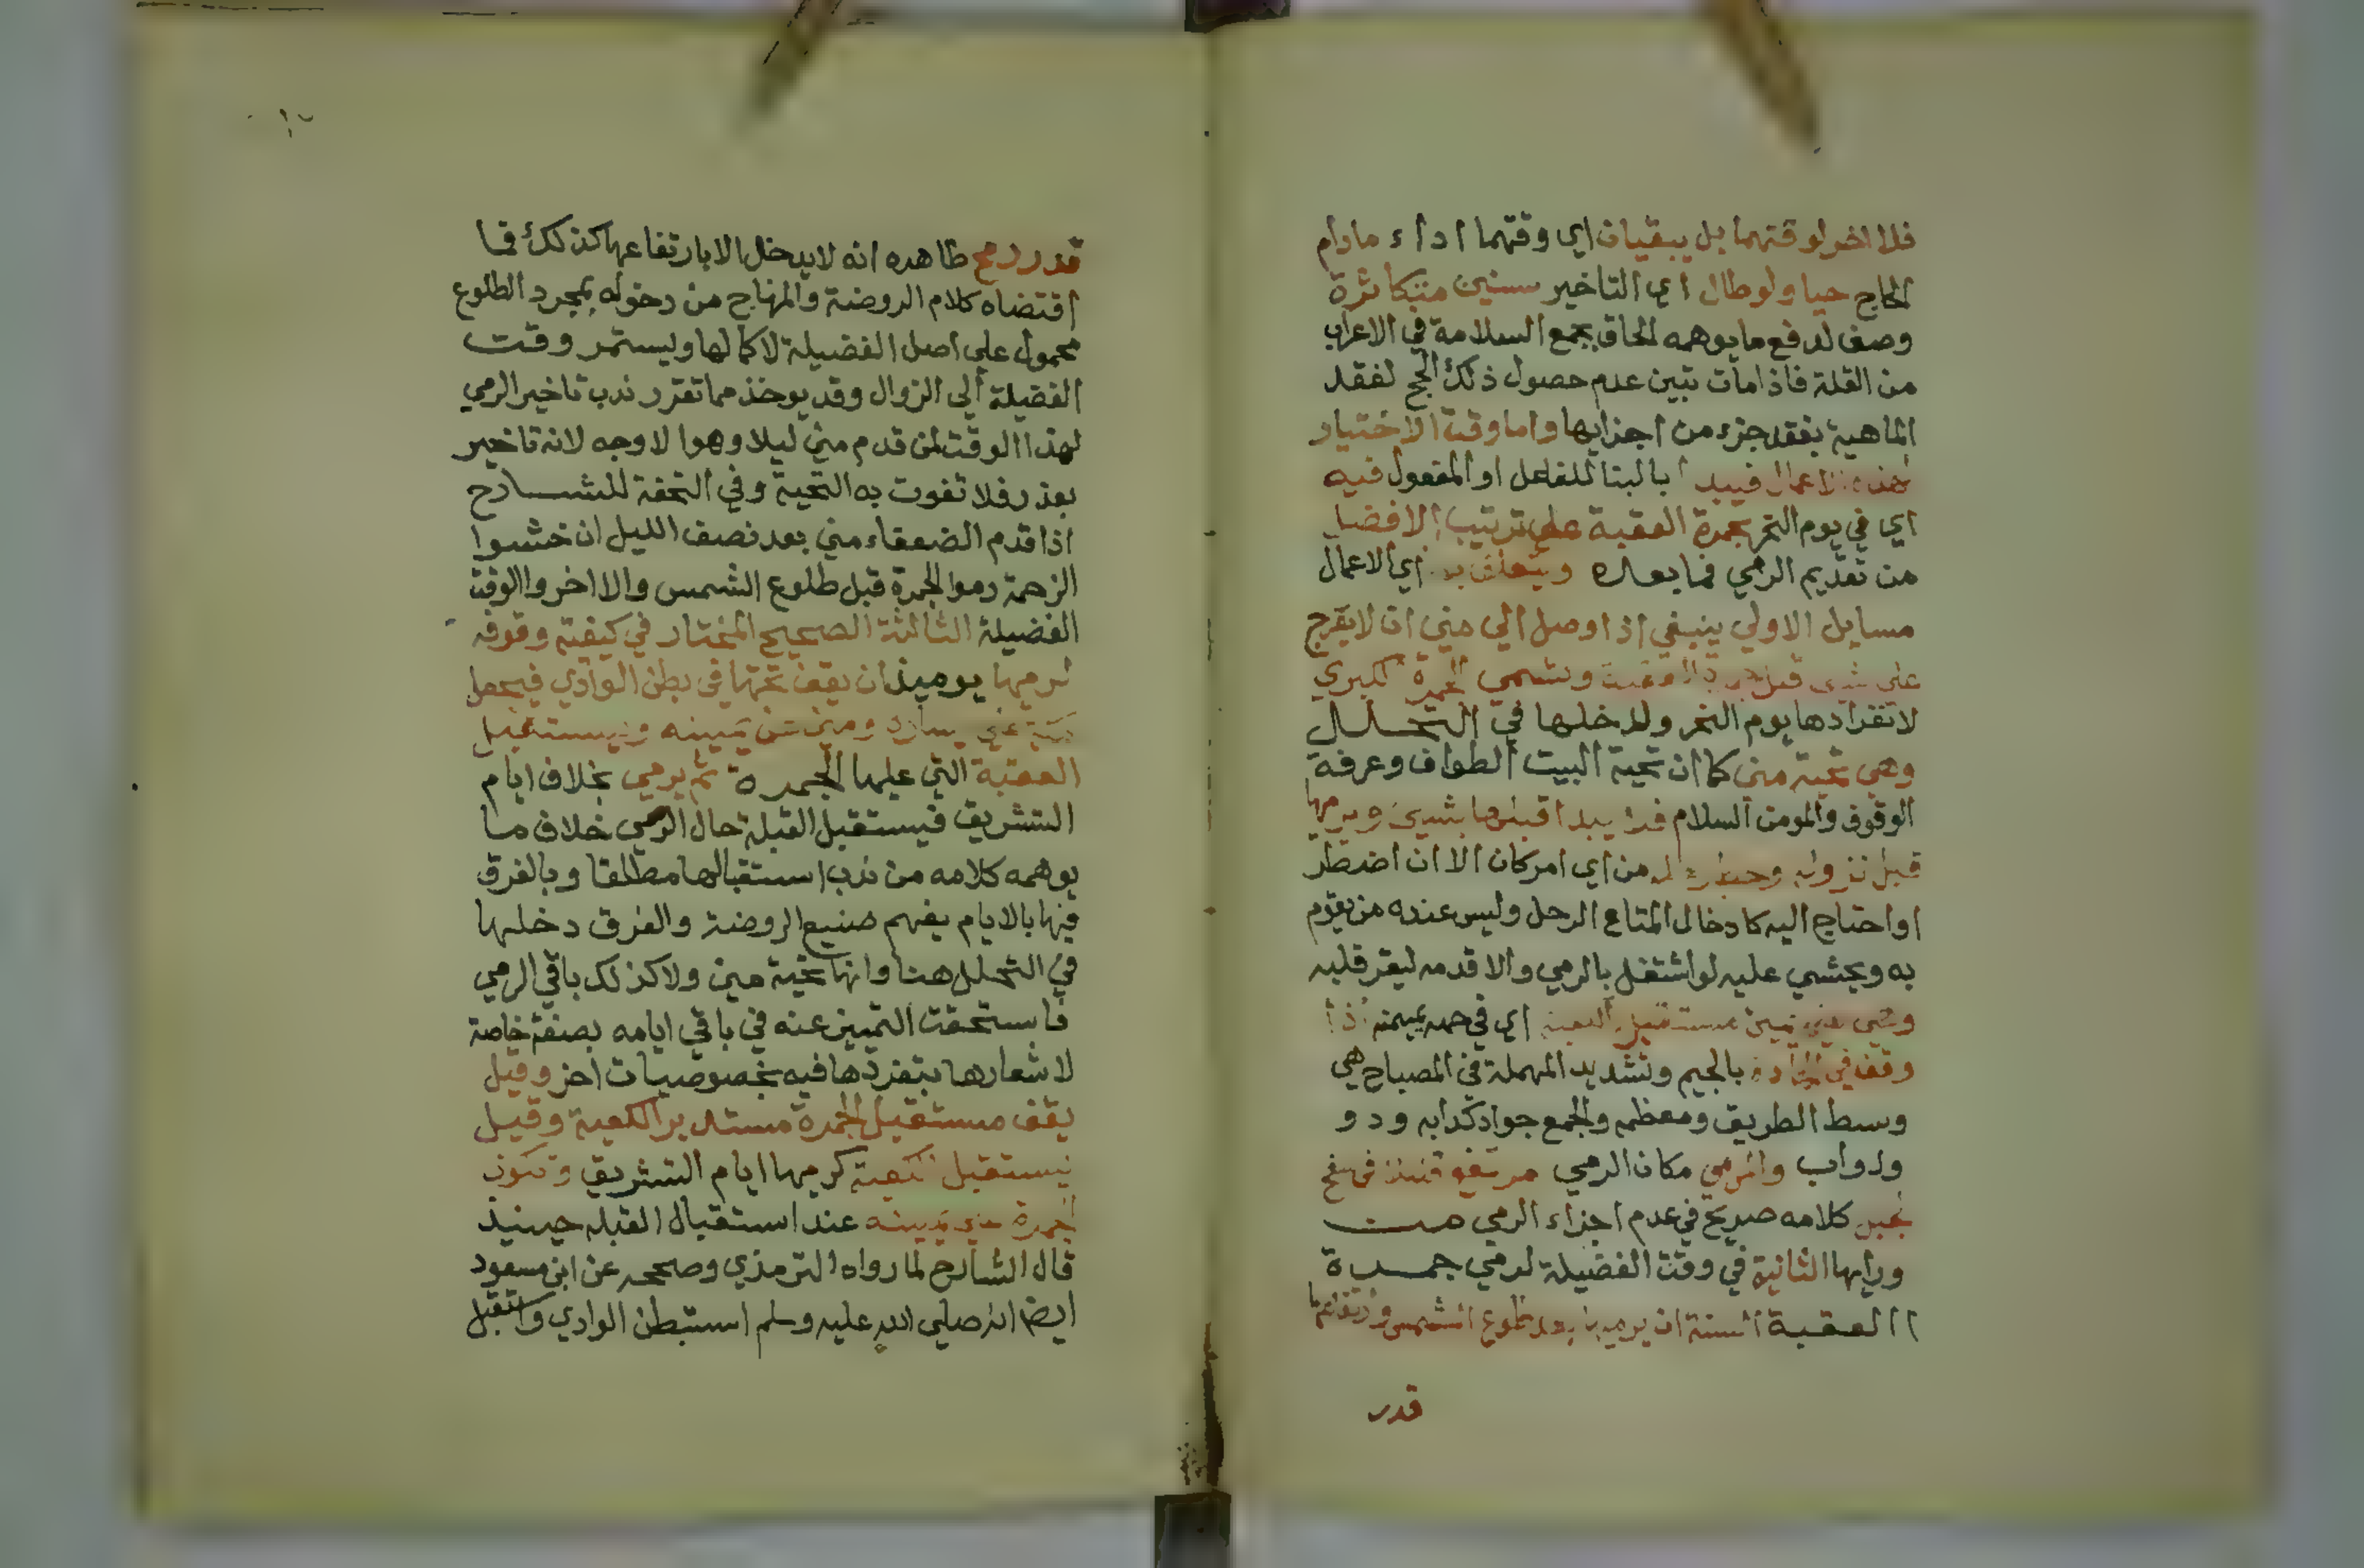 فلا اخر لوقتهما بل يبقيان اي وقتهما اداء مادام
الحاج حيا ولو طال اي التاخير سنين متكاثرة
وصف لدفع ما يوهمه الحاق بجمع السلامة في الاعراب
من القلة فاذا مات تبين عدم حصول ذلك الحج لفقد
الماهية بفقد جزء من اجزايها واما وقت الاختيار
لهذه الاعمال فيبدا بالبنا للفاعل او المفعول فيه
اي في يوم النحر بجمرة العقبة على ترتيب الافضل
من تقديم الرمي فما بعده ويتعلق به اي الاعمال
مسايل الاولي ينبغي اذا وصل الي مني ان لا يعرج
علي شيء قبل جمرة العقبة وتسمي الجمرة الكبري
لانفرادها يوم النحر ولدخلها في التحلل
وهي تحية مني كما ان تحية البيت الطواف وعرفة
الوقوف والمومن السلام فلا يبدا قبلها بشيئ ويرميها
قبل نزوله وحط رحله من اي امر كان الا ان اضطر
او احتاج اليه كادخال المتاع الرحل وليس عنده من يقوم
به ويخشي عليه لو اشتغل بالرمي والا قدمه ليقر قلبه
وهي علي يمين مستقبل الكعبة اي في حد يمينه اذا
وقف في الجادة بالجيم وتشديد المهملة في المصباح هي
وسط الطريق ومعظمه والجمع جواد كدابه ودو
ودواب والمرمي مكان الرمي مرتفع قليلا في سفح
الجبل كلامه صريح في عدم اجزاء الرمي من
ورايها الثانية في وقت الفضيلة لرمي جمرة
العقبة السنة ان يرميها بعد طلوع الشمس وارتفاعها
قدر
قدر رمح ظاهره انه لا يدخل الا بارتفاعها كذلك فما
اقتضاه كلام الروضة والمنهاج من دخوله بمجرد الطلوع
محمول علي اصل الفضيلة لا كمالها ويستمر وقت
الفضيلة الي الزوال وقد يوخذ مما تقرر ندب تاخير الرمي
لهذا الوقت لمن قدم مني ليلا وهوا لاوجه لانه تاخير
بعذر فلا تفوت به التحية وفي التحفة للشارح
اذا قدم الضعفاء مني بعد نصف الليل ان خشوا
الزحمة رموا الجمرة قبل طلوع الشمس والا اخروا الوقت
الفضيلة الثالثة الصحيح المختار في كيفية وقوفه
لرميها يوميذ ان يقف تحتها في بطن الوادي فيجعل
مكة عن يساره ومني عن يمينه ويستقبل
العقبة التي عليها الجمرة ثم يرمي بخلاف ايام
التشريق فيستقبل القبلة حال الرمي خلاف ما
يوهمه كلامه من ندب استقبالها مطلقا وبالفرق
فيها بالايام يفهم صنيع الروضة والفرق دخلها
في التحلل هنا وانها تحية مني ولا كذلك باقي الرمي
فاستحقت التميز عنه في باقي ايامه بصفة خاصة
لاشعارها بتفردها فيه بخصوصيات اخر وقيل
يقف مستقبل الجمرة مستدبر الكعبة وقيل
يستقبل الكعبة كرميها ايام التشريق وتكون
الجمرة علي يمينه عند استقبال القبله حينيذ
قال الشارح لما رواه الترمذي وصححه عن ابن مسعود
ايضا انه صلي الله عليه وسلم استبطن الوادي واستقبل